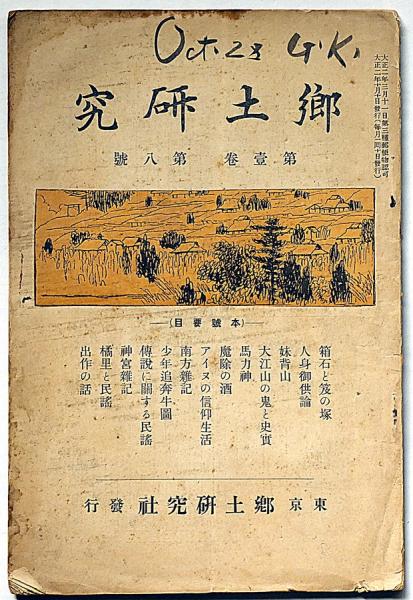 Oct. 28 G.K.
大正二年三月十一日第三種郵便物認可
大正二年十月十日發行（每月一回十日發行）
鄉土硏究
第壹卷 第八號
（本號要目）
箱石と笈の塚
人身御供論
妹背山
大江山の鬼と史實
馬力神
魔除の酒
アイヌの信仰生活
南方雜記
少年追奔牛圖
傳說に關する民謠
神宮雜記
橘里と民謠
出作の話
東京 鄉土硏究社 發行